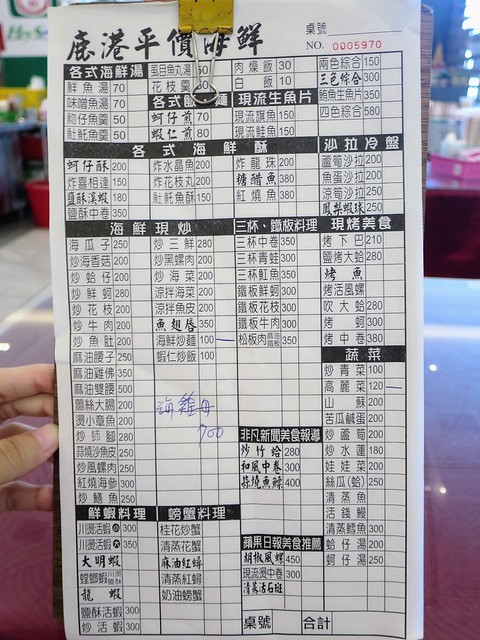 鹿港平價海鮮
桌號
NO. 0005970
各式海鮮湯
鮮魚湯 70
味噌魚湯 70
魩仔魚羹 50
魠魠魚羹 50
虱目魚丸湯 50
花枝羹 50
蚵仔煎 70
蝦仁煎 80
肉燥飯 30
白飯 10
現流生魚片
現流旗魚 150
現流鮭魚 150
兩色綜合 150
三色綜合 300
鮪魚生魚片 350
四色綜合 580
各式海鮮酥
蚵仔酥 200
炸喜相逢 150
鹽酥溪蝦 180
鹽酥中卷 350
炸水晶魚 200
炸花枝丸 200
魠魠魚酥 150
炸龍珠 200
糖醋魚 380
紅燒魚 380
沙拉冷盤
蘆筍沙拉 200
魚蛋沙拉 200
涼筍沙拉 200
鳳梨蝦球 250
海鮮現炒
海瓜子 250
炒海香菇 200
炒蛤仔 200
炒鮮蚵 280
炒花枝 200
炒牛肉 200
炒魚肚 200
麻油腰子 250
麻油雞佛 350
麻油雙腰 500
薑絲大腸 200
燙小章魚 200
炒師腳 280
蒜燒沙魚皮 250
炒風螺肉 250
紅燒海參 300
炒鱔魚 250
炒三鮮 280
炒黑螺肉 200
炒海菜 200
涼拌海菜 200
涼拌魚皮 200
魚翅唇 350
海鮮炒麵 100
蝦仁炒飯 100
海雞母
700
三杯、鐵板料理
三杯中卷 350
三杯青蛙 300
三杯魟魚 350
鐵板鮮蚵 300
鐵板花枝 300
鐵板牛肉 300
松板肉 350
現烤美食
烤下巴 210
鹽烤大蛤 280
烤魚
烤活風螺
吹大蛤 280
烤蚵 300
烤中卷 380
蔬菜
炒青菜 100
高麗菜 120
山蘇 200
苦瓜鹹蛋 200
炒蘆筍 200
炒水蓮 180
娃娃菜 200
絲瓜(蛤) 250
清蒸魚
活錢鰻
清蒸鱈魚 300
蛤仔湯 200
蚵仔湯 250
非凡新聞美食報導
炒竹蛤 280
和風中卷 300
蒜燒魚鰾 400
鮮蝦料理
川燙活蝦 小 300
川燙活蝦 大 350
大明蝦
螳螂蝦
龍蝦
鹽酥活蝦 300
炒活蝦 300
螃蟹料理
桂花炒蟹
清蒸花蟹
麻油紅蟳
清蒸紅蟳
奶油螃蟹
蘋果日報美食推薦
胡椒風螺 450
現流燙中卷 300
清蒸活石斑
桌號 合計